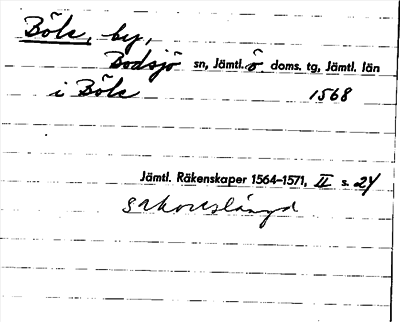 Böle, by,
Bodsjö sn, Jämtl. ö doms. tg, Jämtl. län
i Böle 1568
Jämtl. Räkenskaper 1564–1571, II s. 24
sakoreslängd